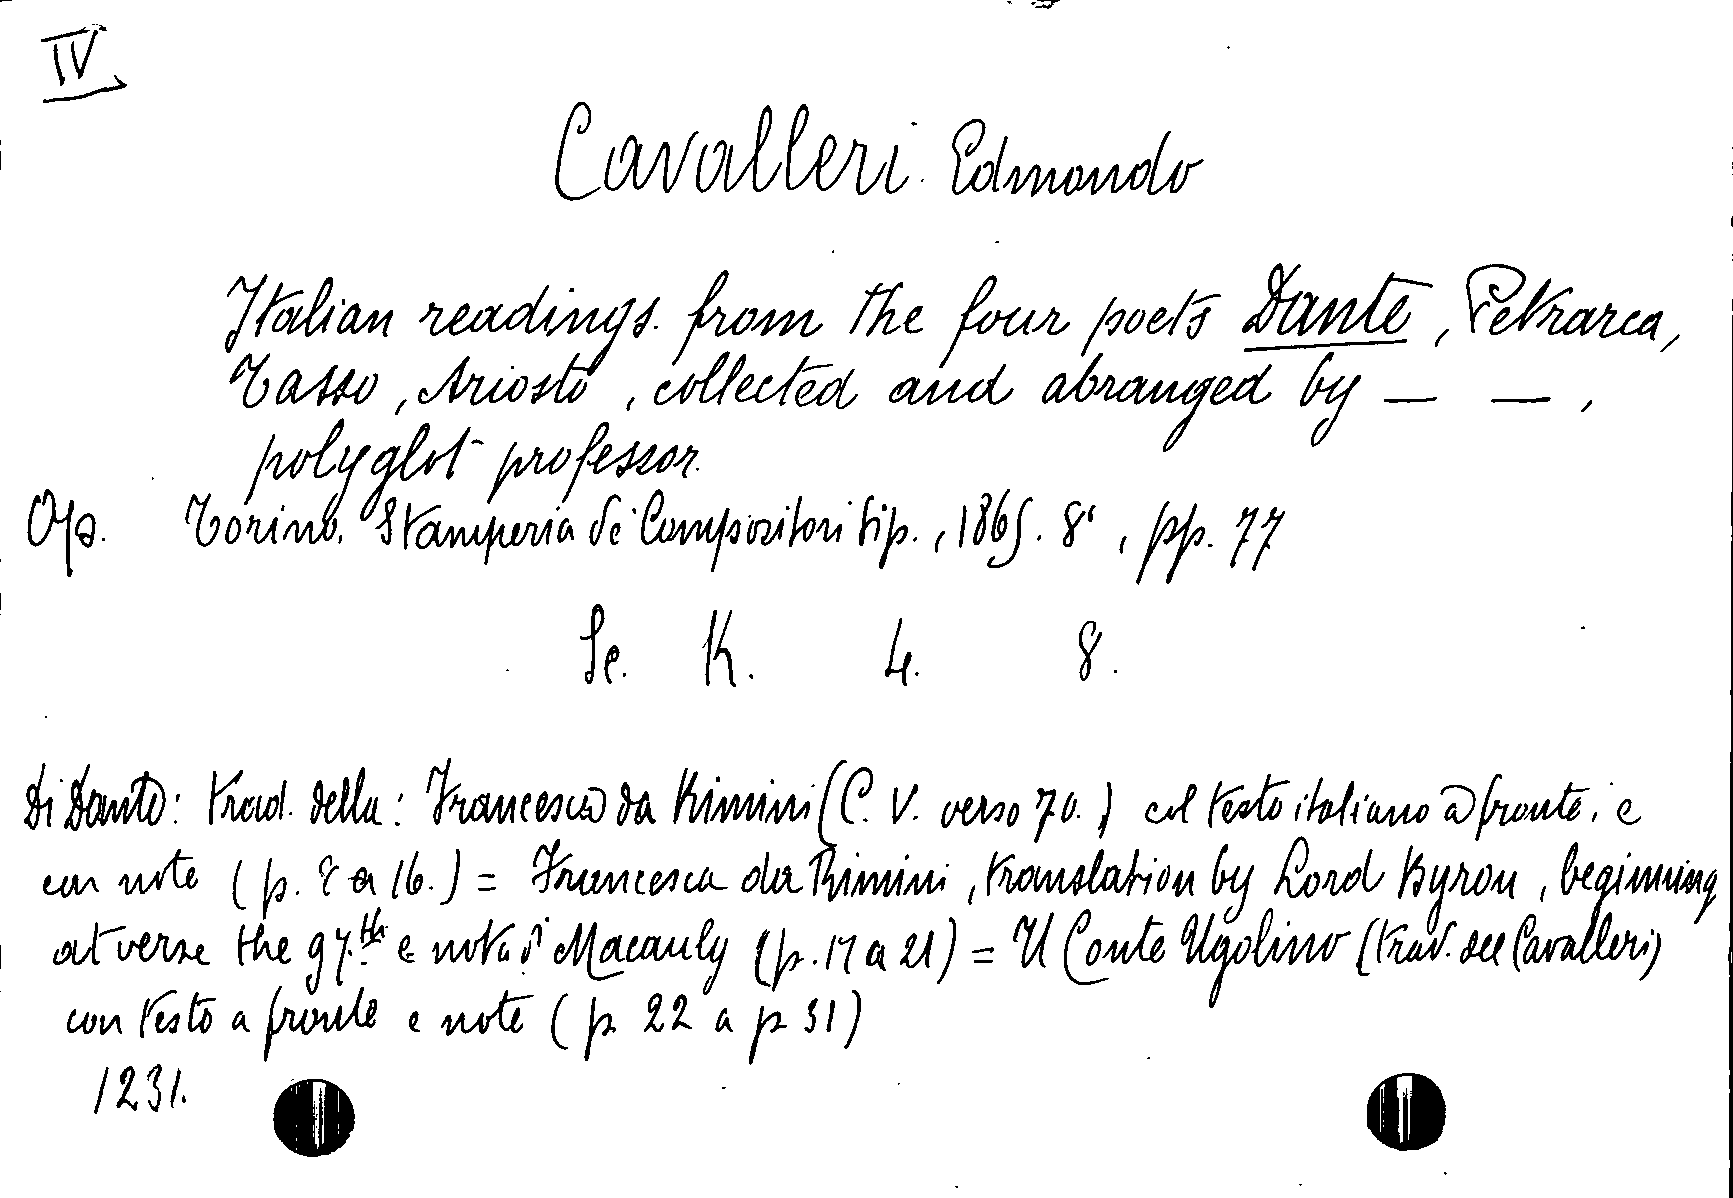 IV
Cavalleri Edmondo
Italian readings from the four poets Dante, Petrarca,
Tasso, Ariosto, collected and abranged by — —,
polyglot professor.
Op. Torino. Stamperia de' Compositori tip., 1865. 8°, pp. 77
Se. K. 4. 8.
Di Dante: trad. della: Francesca da Rimini (C. V. verso 70.) col testo italiano a fronte, e
con note (p. 8 a 16.) = Francesca da Rimini, translation by Lord Byron, beginning
at verse the 97.th e nota di Macauly (p. 17 a 21) = Il Conte Ugolino (trad. del Cavalleri)
con testo a fronte e note (p 22 a p 31)
1231.